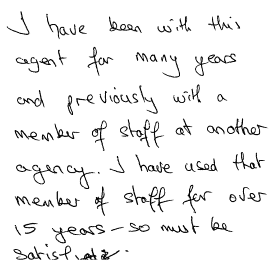 I have been with this
agent for many years
and previously with a
member of staff at another
agency. I have used that
member of staff for over
15 years - so must be